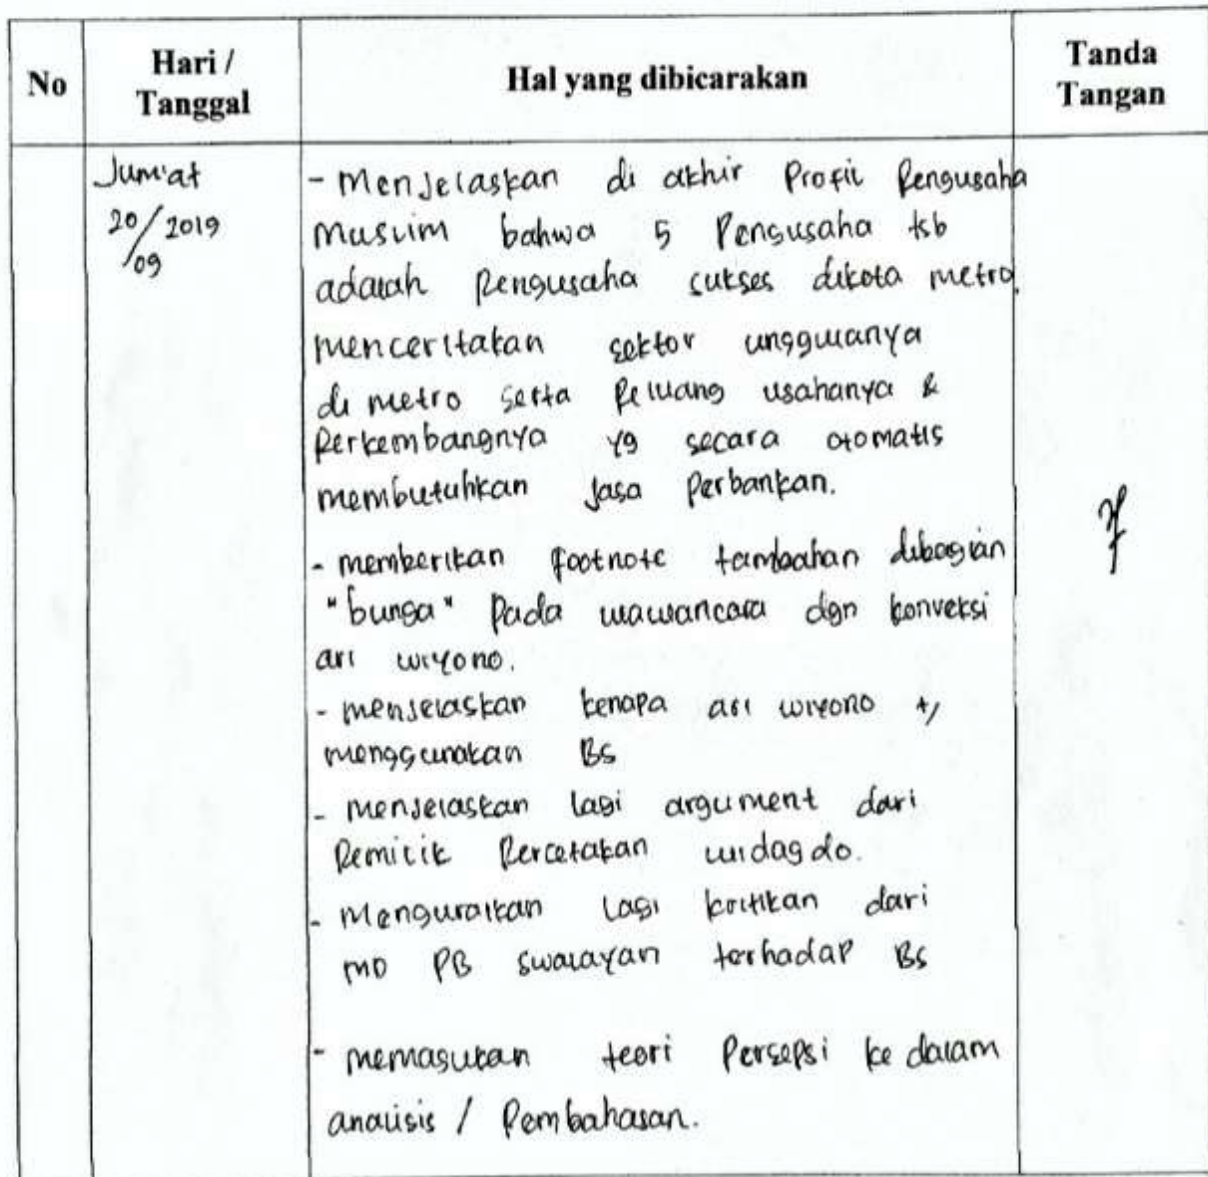 No
Hari /
Tanggal
Hal yang dibicarakan
Tanda
Tangan
Jum'at
20/09 2019
- Menjelaskan di akhir Profil Pengusaha
Muslim bahwa 5 Pengusaha tsb
adalah Pengusaha sukses dikota metro.
menceritakan sektor unggulanya
di metro serta Peluang usahanya &
Perkembangnya yg secara otomatis
membutuhkan Jasa Perbankan.
- memberikan footnote tambahan dibagian
"bunga" Pada wawancara dgn konveksi
ari wiyono.
- menjelaskan kenapa ari wiyono
menggunakan BS
- menjelaskan lagi argument dari
Pemilik Percetakan widagdo.
- Menguraikan lagi kritikan dari
PB swalayan terhadap BS
- memasukan teori Persepsi ke dalam
analisis / Pembahasan.